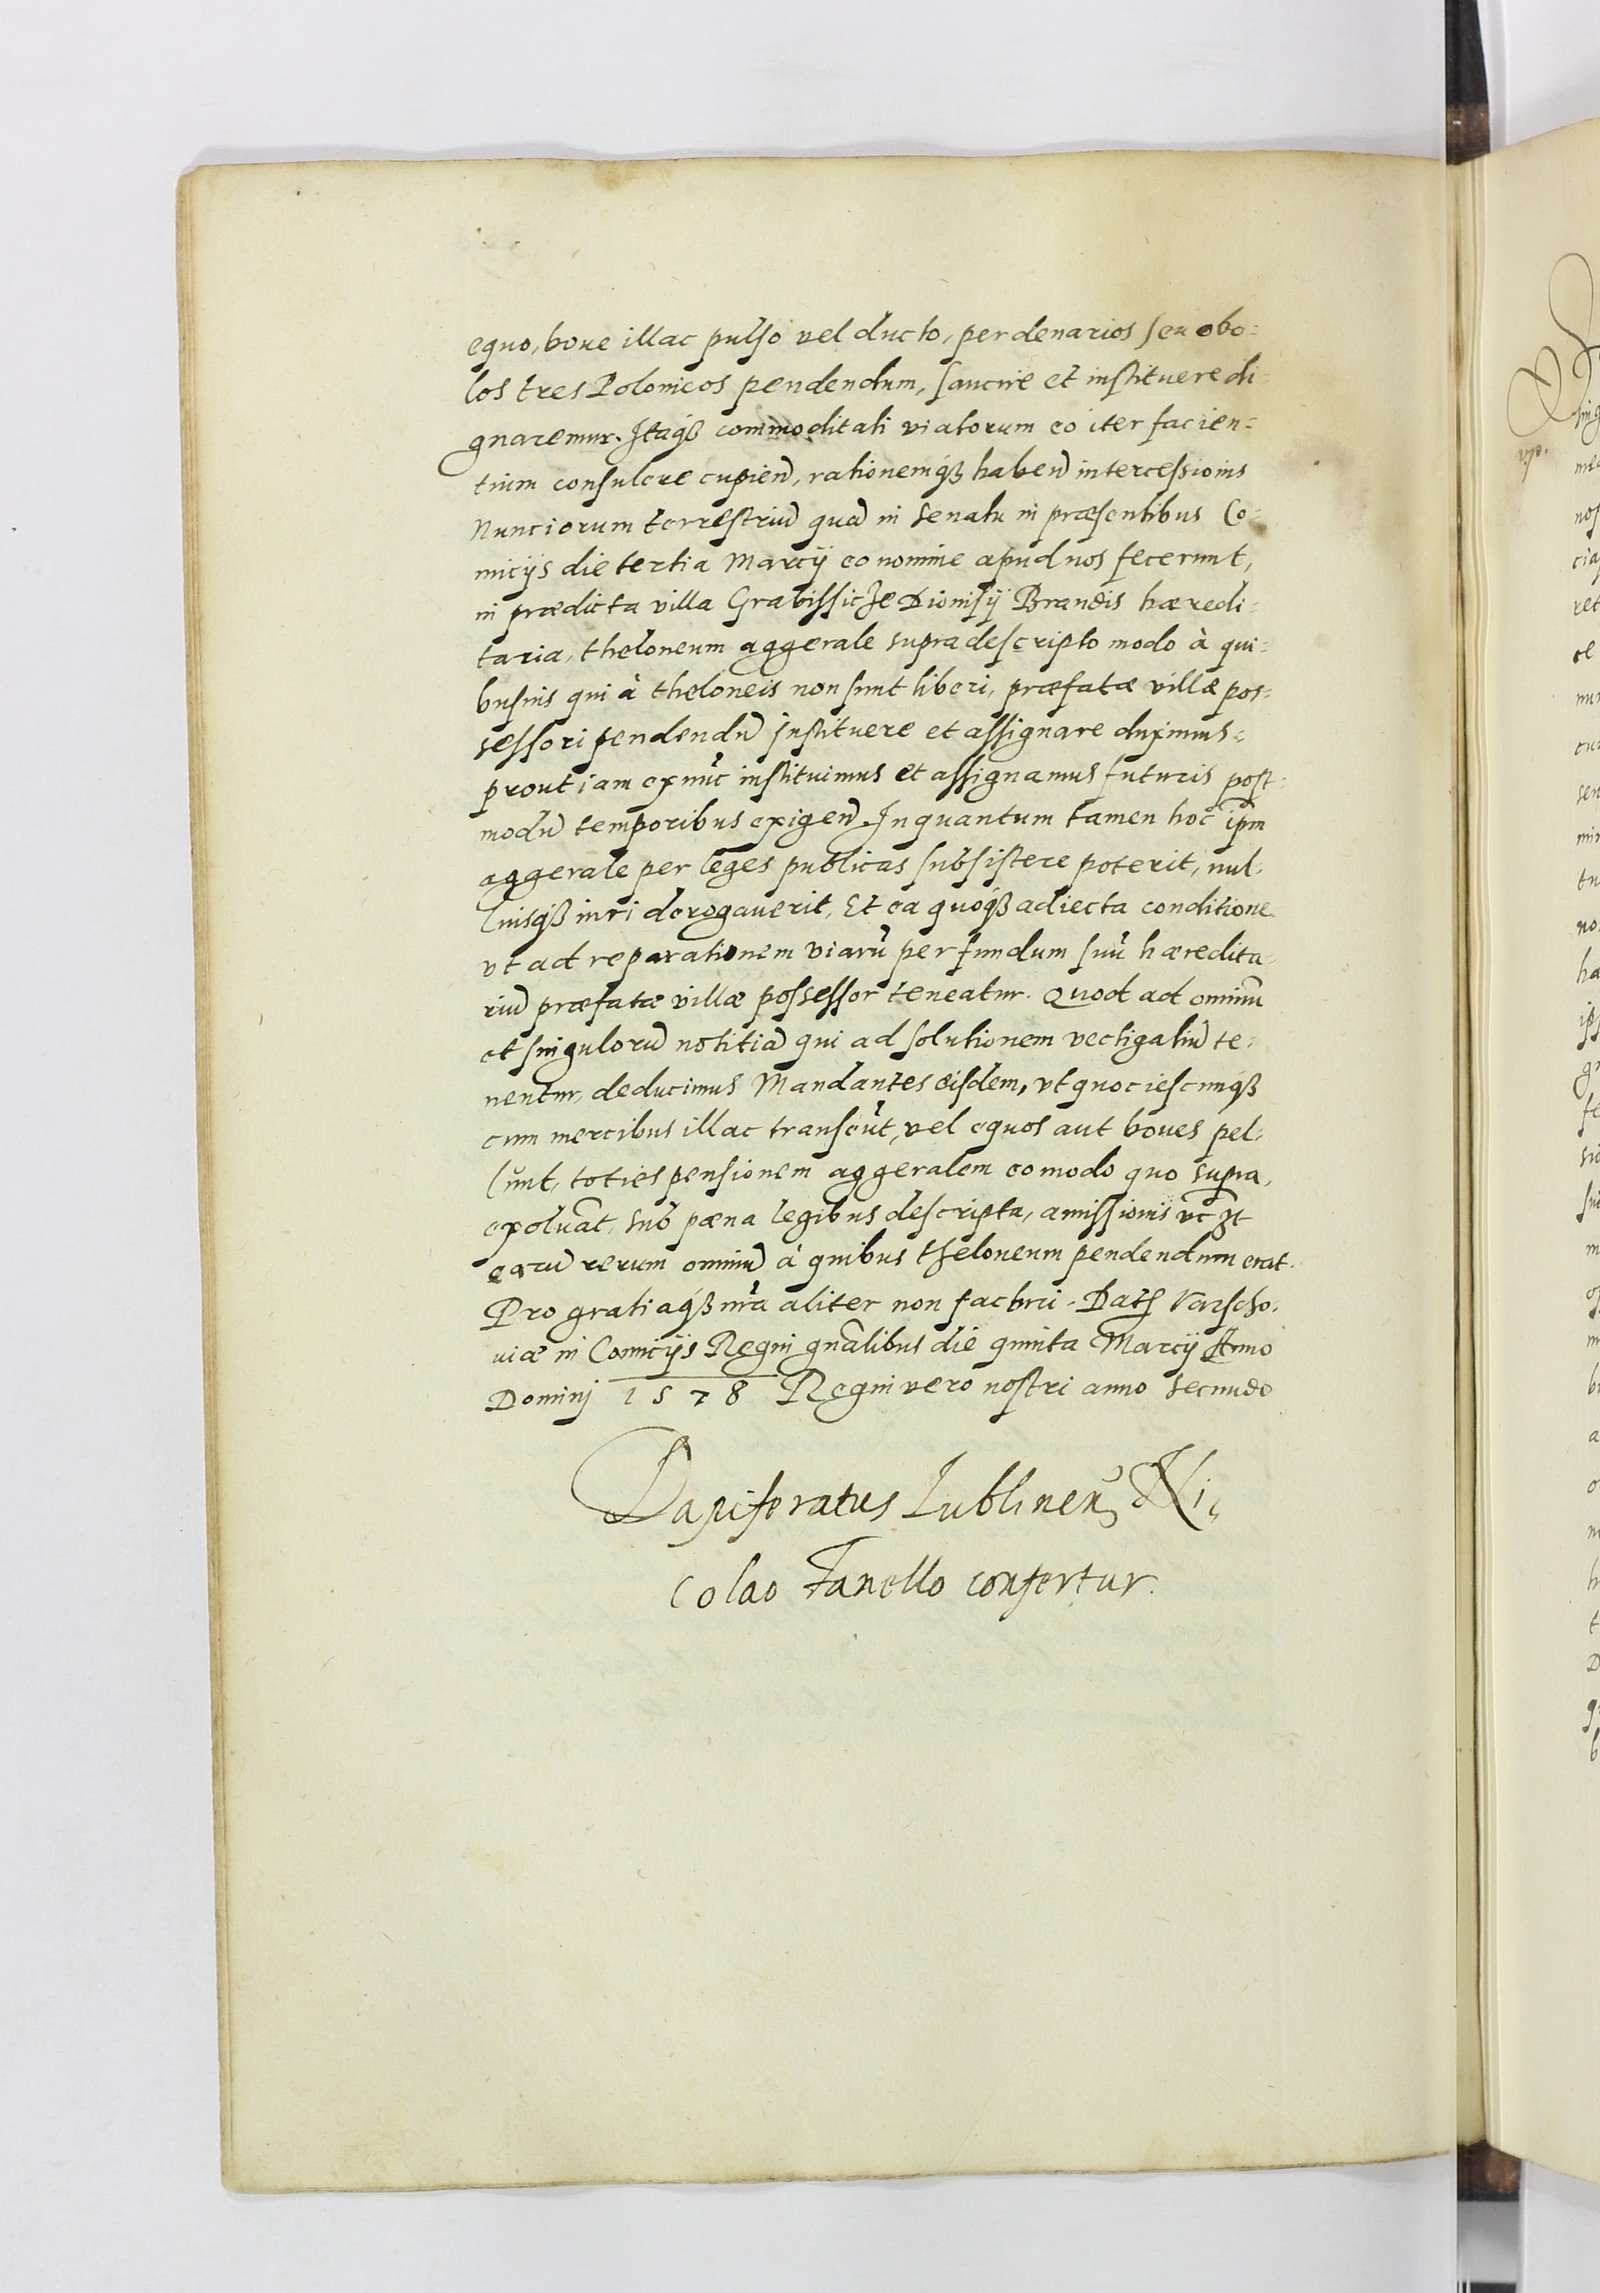 equo, boue illac pulso vel ducto, per denarios seu obo=
los tres Polonicos pendendum, sancire et instituere di=
gnaremur. Itaqз commoditati viatorum eo iter facien=
tium consulere cupien̄, rationemqз haben̄ intercessionis
Nunciorum terrestriū quā in Senatu in præsentibus Co=
micijs die tertia Marcij eo nomine apud nos fecerunt,
in prædicta villa Grabissicze Dionisÿ Brandis hæredi=
taria, theloneum aggerale supradescripto modo à qui=
busuis qui à theloneis non sunt liberi, præfatæ villæ pos=
sessori pendendū instituere et assignare duximus=
prout iam ex nūc instituimus et assignamus futuris post=
modū temporibus exigen̄. In quantum tamen hoc ipm̄
aggerale per leges publicas subsistere poterit, nul=
liusqз iuri derogauerit, Et ea quoqз adiecta conditione
vt ad reparationem viarū per fundum suū hæredita=
riū præfatæ villæ possessor teneatur. Quod ad omniū
et singulorū notitiā qui ad solutionem vectigaliū te=
nentur, deducimus Mandantes eisdem, vt quociescunqз
cum mercibus illac transeūt, vel equos aut boues pel=
lunt, toties pensionem aggeralem eo modo quo supra,
exoluāt, sub pœna legibus descripta, amissionis
earū rerum omniū à quibus theloneum pendendum erat.
Pro gratiaqз nr̄a aliter non facturi. Dat Varscho=
uiæ in Comicijs Regni gn̄alibus die quinta Marcij Anno
Dominj 1578 Regni vero nostri anno Secundo
Dapiferatus Lublinen̄ Ni=
colao Fanello confertur.